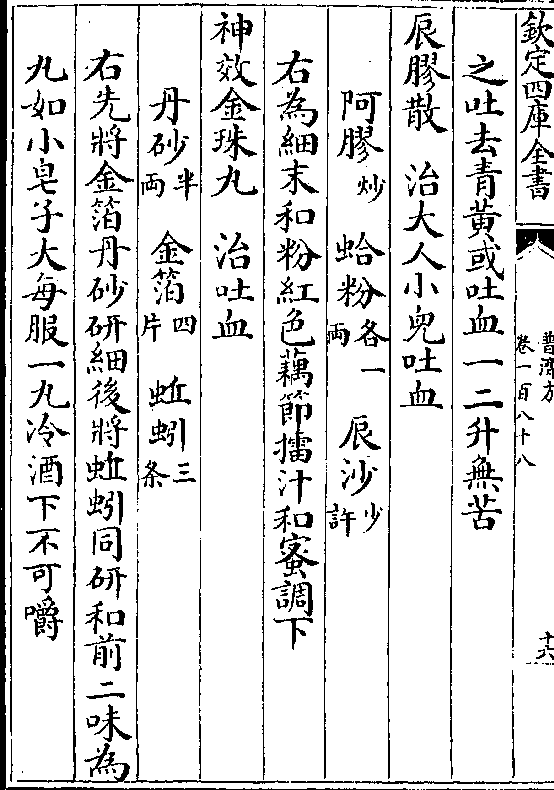 欽定四庫全書
普濟方
卷一百八十八
十六
之吐去青黃或吐血一二升無苦
辰膠散 治大人小兒吐血
阿膠炒 蛤粉各一兩 辰沙少許
右為細末和粉紅色藕節擂汁和蜜調下
神效金珠丸 治吐血
丹砂半兩 金箔四片 蚯蚓三条
右先將金箔丹砂研細後將蚯蚓同研和前二味為
丸如小皂子大每服一丸冷酒下不可嚼